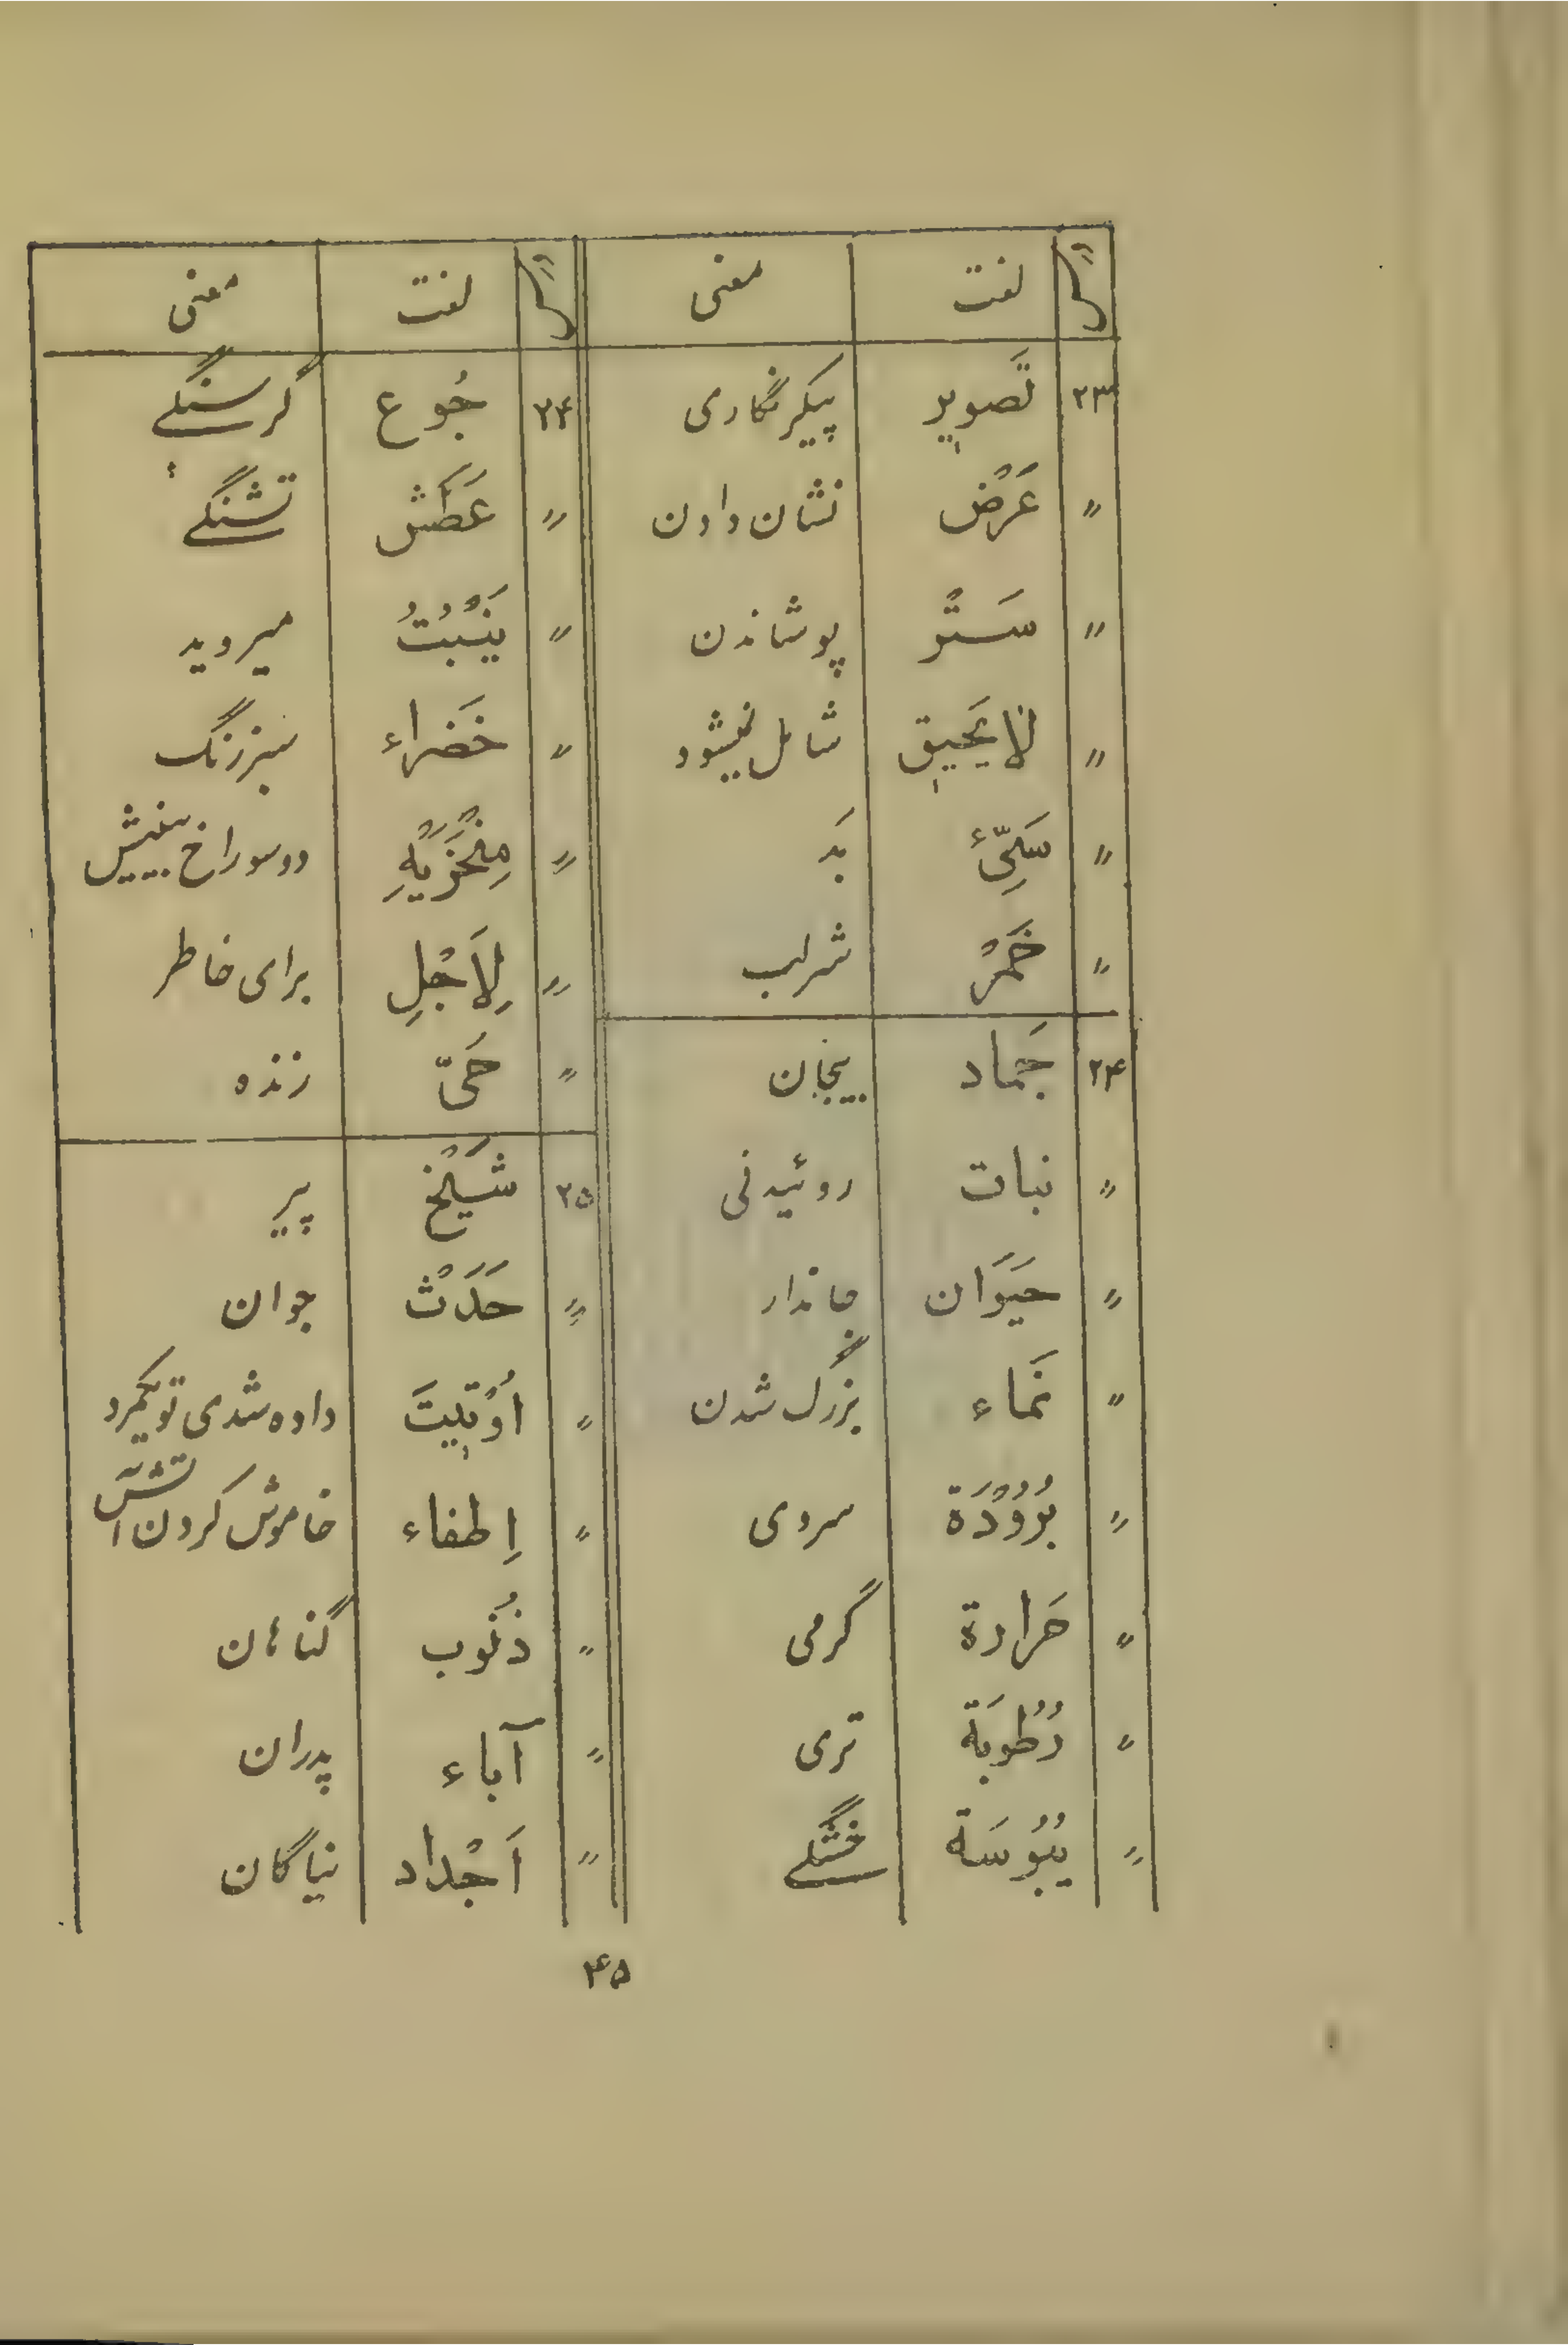 لغت معنی
۲۳ تَصویر پیکرنگاری
〃 عَرْض نشان دادن
〃 سَتْر پوشاندن
〃 لایَحیق شامل نمیشود
〃 سَیِّئ بَد
〃 خَمْر شراب
۲۴ جَماد بیجان
〃 نبات روئیدنی
〃 حَیَوان جاندار
〃 نَماء بزرگ شدن
〃 بُرُوْدَة سردی
〃 حَرارة گرمی
〃 رُطُوبَة تری
〃 یُبُوسَة خشکی
لغت معنی
۲۴ جُوع گرسنگی
〃 عَطَش تشنگی
〃 یَنْبُتُ میروید
〃 خَضراء سبزرنگ
〃 مِنْخَرَیْهِ دو سوراخ بینیش
〃 لِاَجْلِ برای خاطر
〃 حَیّ زنده
۲۵ شَیْخ پیر
〃 حَدَث جوان
〃 اُوْتِیتَ داده شدی تو یکمرد
〃 اِطفاء خاموش کردن آتش
〃 ذُنُوب گناهان
〃 آباء پدران
〃 اَجْداد نیاگان
۴۵